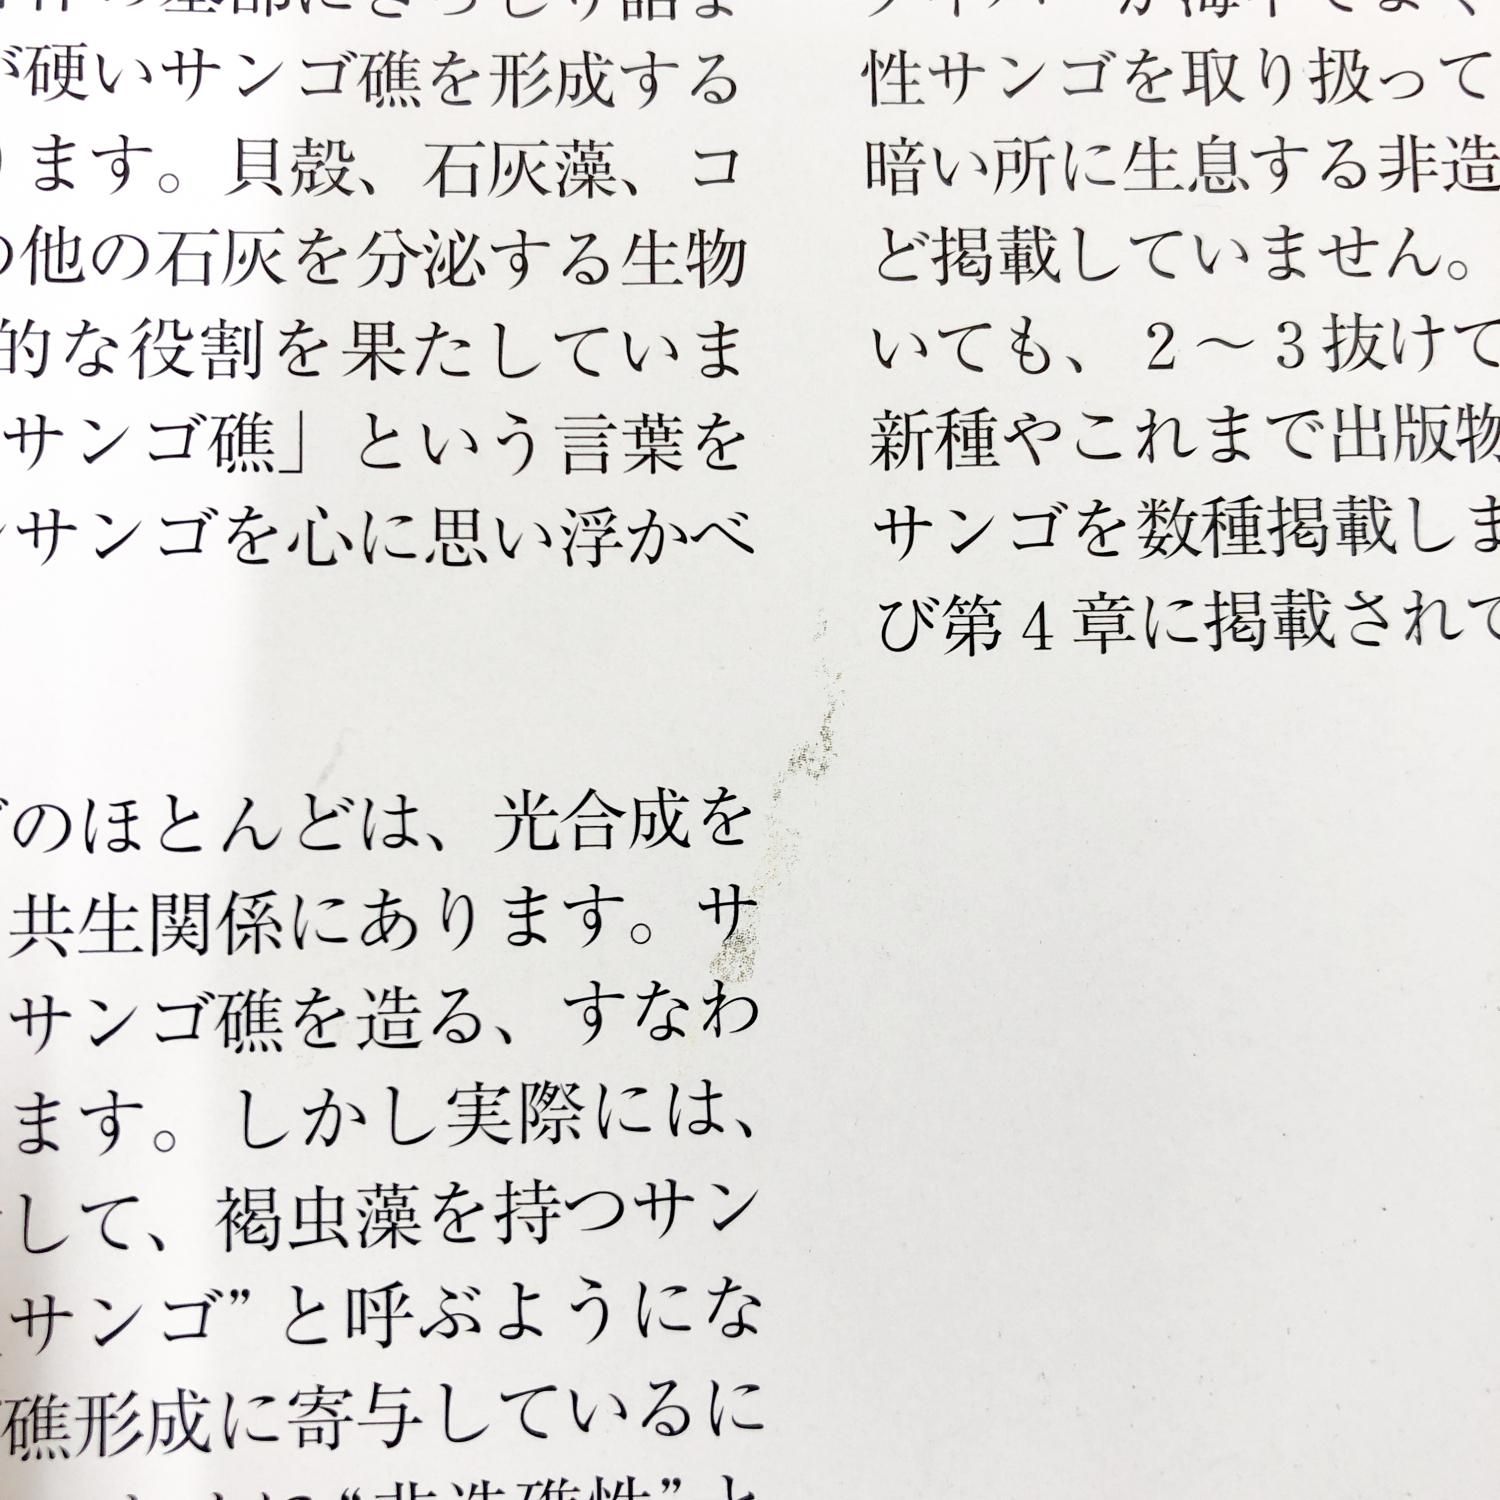 が硬いサンゴ礁を形成する
ります。貝殻、石灰藻、コ
の他の石灰を分泌する生物
的な役割を果たしていま
サンゴ礁」という言葉を
サンゴを心に思い浮かべ
のほとんどは、光合成を
共生関係にあります。サ
サンゴ礁を造る、すなわ
ます。しかし実際には、
して、褐虫藻を持つサン
サンゴ”と呼ぶようにな
礁形成に寄与しているに
“非造礁性”と
性サンゴを取り扱って
暗い所に生息する非造
ど掲載していません。
いても、2～3抜けて
新種やこれまで出版物
サンゴを数種掲載しま
び第4章に掲載されて